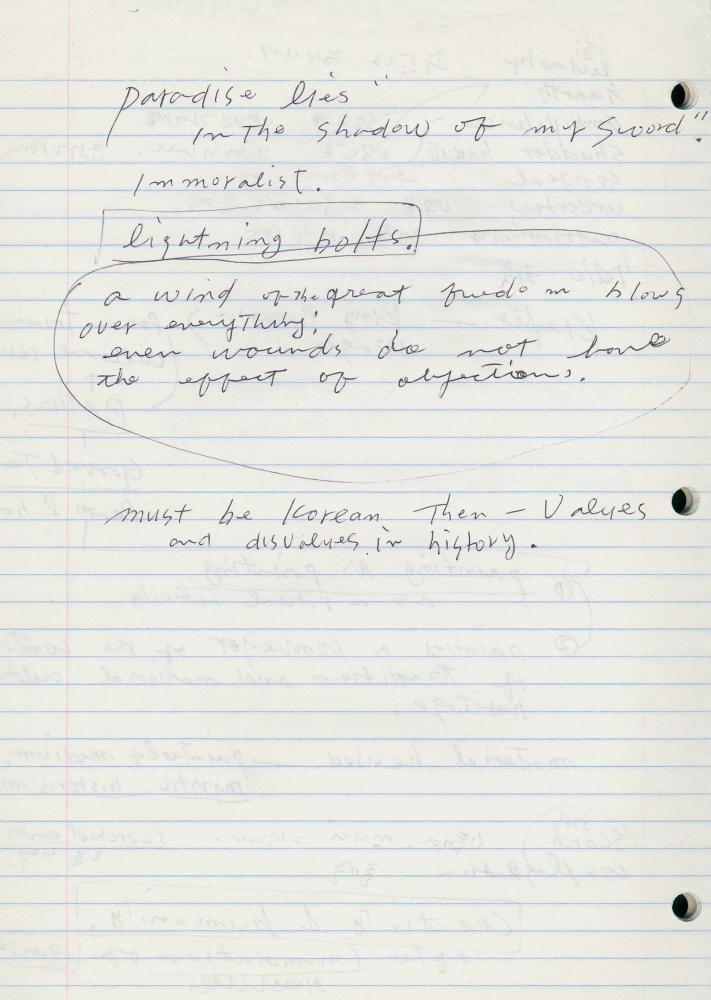 paradise lies "
in the shadow of my sword".
Immoralist.
lightning bolts.
a wind of the great freedom blows
over everything;
even wounds do not have
the effect of objections.
must be Korean Then – Values
and disvalues in history.